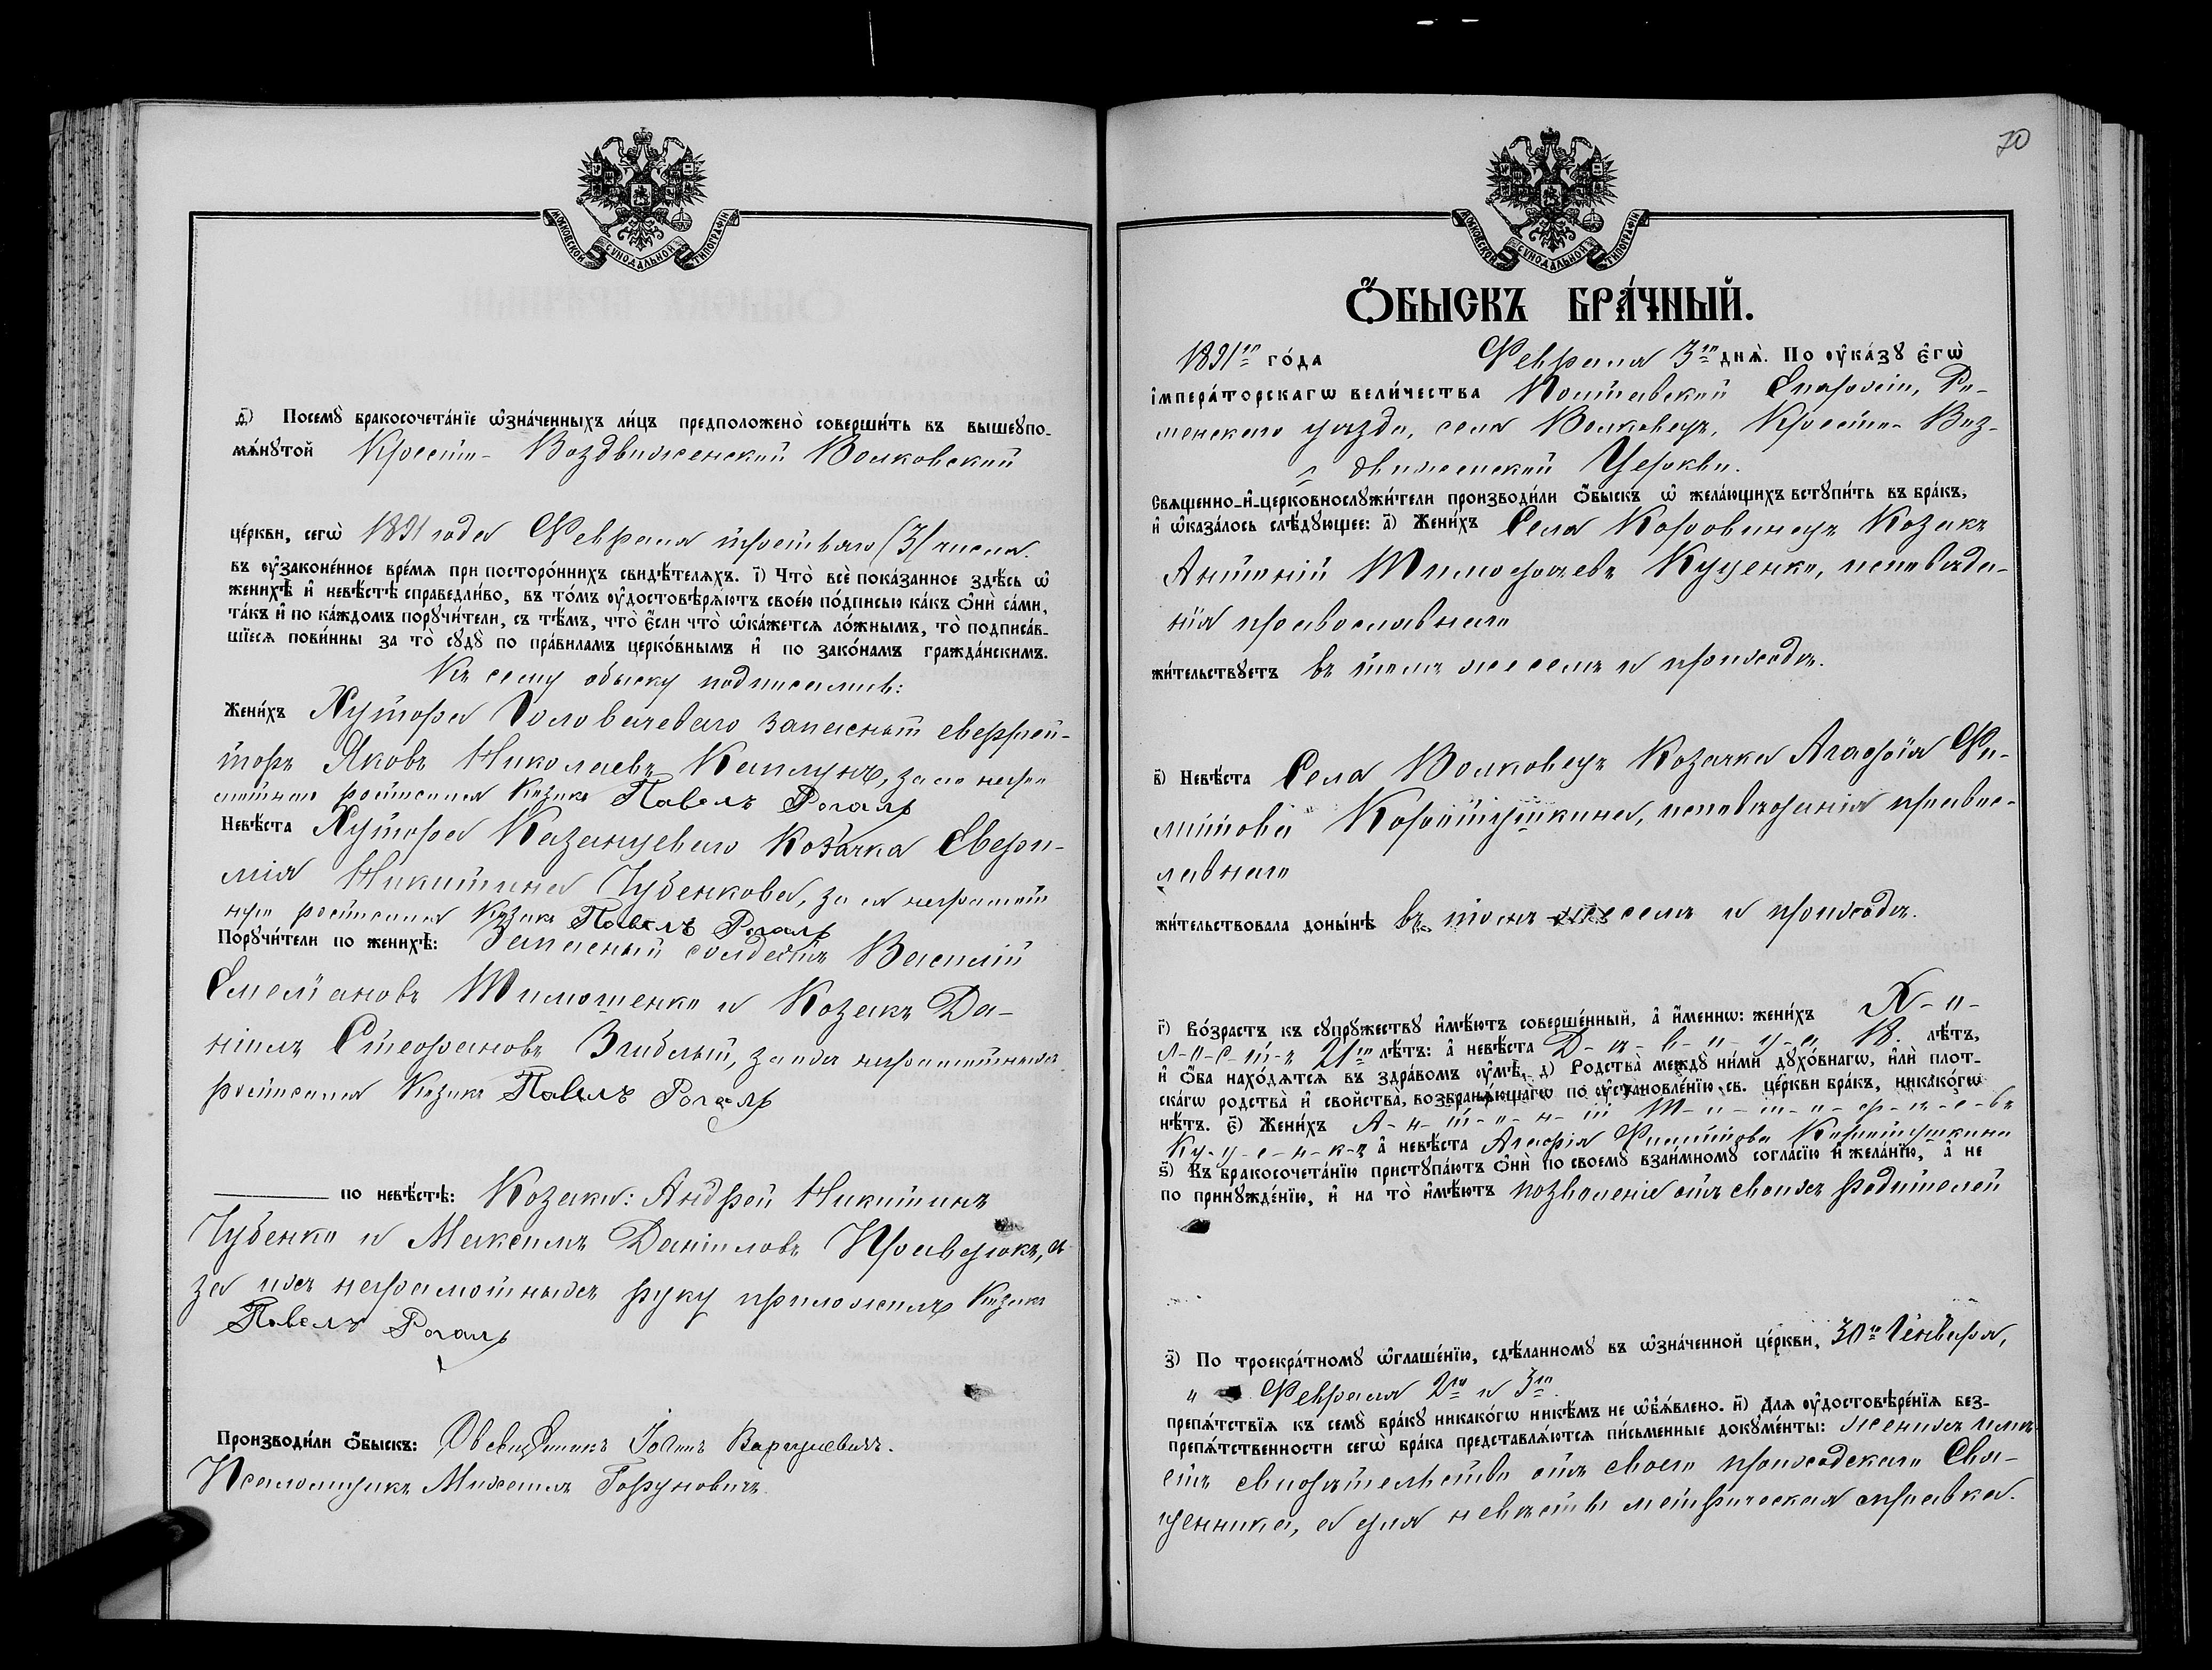 МОСКОВСКОЙ СѴНОДАЛЬНОЙ ТИПОГРАФІИ
д҃і) Посемꙋ̀ бракосочета́нїе ѡ҆зна́ченныхъ ли́цъ предположено̀ соверши́ть въ вышеꙋпо-
мѧ́нꙋтой Кресто- Воздвиженской Волковской
це́ркви, сегѡ̀ 1891 года Февраля третьяго (3) числа.
въ ᲂу҆зако́ненное вре́мѧ при посторо́ннихъ свидѣ́телѧхъ. і҃) Что̀ всѐ пока́занное здѣ́сь ѡ҆
женихѣ̀ и҆ невѣ́стѣ справедли́во, въ то́мъ ᲂу҆достовѣрѧ́ютъ свое́ю по́дписью ка́къ ѻ҆нѝ са́ми,
та́къ и҆ по ка́ждомъ порꙋчи́тели, съ тѣ́мъ, что̀ є҆́сли что̀ ѡ҆ка́жетсѧ ло́жнымъ, то̀ подписа́в-
шїесѧ пови́нны за то̀ сꙋдꙋ̀ по пра́виламъ церко́внымъ и҆ по зако́намъ гражда́нскимъ.
Къ сему обыску подписались:
Жени́хъ Хутора Головачеваго запасный ефрей-
торъ Яковъ Николаевъ Каплунъ, за не гра-
мотнаго росписался Козакъ Павелъ Рогаль
Невѣ́ста Хутора Казанцеваго Козачка Евфи-
мія Никитина Чубенкова, за ея неграмот
ную росписался Козакъ Павелъ Рогаль
Порꙋчи́тели по женихѣ̀: Запасный солдатъ Василій
Емельяновъ Тимошенко и Козакъ Да-
ніилъ Стефановъ Зыблый, за ихъ неграмотныхъ
росписался Козакъ Павелъ Рогаль
по невѣ́стѣ: Козаки: Андрей Никитинъ
Чубенко и Максимъ Даніиловъ Правдюкъ, а
за ихъ неграмотныхъ руку приложилъ Козакъ
Павелъ Рогаль
Производи́ли ѻ҆́быскъ: Іоаннъ
Псаломщикъ Михаилъ Горуновичъ
70
МОСКОВСКОЙ СѴНОДАЛЬНОЙ ТИПОГРАФІИ
Ѻ҆́БЫСКЪ БРА́ЧНЫЙ.
1891го го́да Февраля 3го днѧ̀. По ᲂу҆ка́зꙋ є҆гѡ̀
і҆мпера́торскагѡ вели́чества Полтавской Епархіи, Ро-
менского уѣзда, села Волковецъ, Кресто- Воз-
движенской Церкви.
Свѧщенно-и҆-церковнослꙋжи́тели производи́ли ѻ҆́быскъ ѡ҆ жела́ющихъ встꙋпи́ть въ бра́къ,
и҆ ѡ҆каза́лось слѣ́дꙋющее: а҃) Жени́хъ Села Коровинецъ Козакъ
Антоній Тимофѣевъ Куценко, исповѣда-
нія православнаго
жи́тельствꙋетъ въ томъ же селѣ и приходѣ.
в҃) Невѣ́ста Села Волковецъ Козачка Агафія Фи-
липпова Коротушкина, исповѣданія право-
славнаго
жи́тельствовала доны́нѣ въ томъ же селѣ и приходѣ.
г҃) Во́зрастъ къ сꙋпрꙋ́жествꙋ и҆мѣ́ютъ соверше́нный, а҆ и҆́меннѡ: жени́хъ Х-о-
л-о-с-т-ъ 21го лѣ́тъ: а҆ невѣ́ста Д-ѣ-в-и-ц-а 18. лѣ́тъ,
и҆ ѻ҆́ба нахо́дѧтсѧ въ здра́вомъ ᲂу҆мѣ̀. д҃) Родства̀ междꙋ̀ ни́ми дꙋхо́внагѡ, и҆лѝ плот-
ска́гѡ родства̀ и҆ сво́йства̀, возбранѧ́ющагѡ по ᲂу҆становле́нїю св. це́ркви бра́къ, никако́гѡ
нѣ́тъ. є҃) Жени́хъ А-н-т-о-н-ій Т-и-м-о-ф-ѣ-е-въ
Ку-ц-е-н-к-о а҆ невѣ́ста Агафія Филиппова Коротушкина
ѕ҃) Къ бракосочета́нїю пристꙋпа́ютъ ѻ҆нѝ по своемꙋ̀ взаи́мномꙋ согла́сїю и҆ жела́нїю, а҆ не
по принꙋжде́нїю, и҆ на то̀ и҆мѣ́ютъ позволеніе отъ своихъ родителей
з҃) По троекра́тномꙋ ѡ҆глаше́нїю, сдѣ́ланномꙋ въ ѡ҆зна́ченной це́ркви, 30го Генваря,
и Февраля 2го и 3го.
препѧ́тствїѧ къ семꙋ̀ бра́кꙋ никако́гѡ никѣ́мъ не ѡ҆б̾ѧ́влено. и҃) Длѧ ᲂу҆достовѣре́нїѧ без-
препѧ́тственности сегѡ̀ бра́ка представлѧ́ютсѧ пи́сьменные докꙋме́нты: женихъ имѣ
етъ свидѣтельство отъ своего приходскаго Свя-
щенника, а для невѣсты метрическая справка.